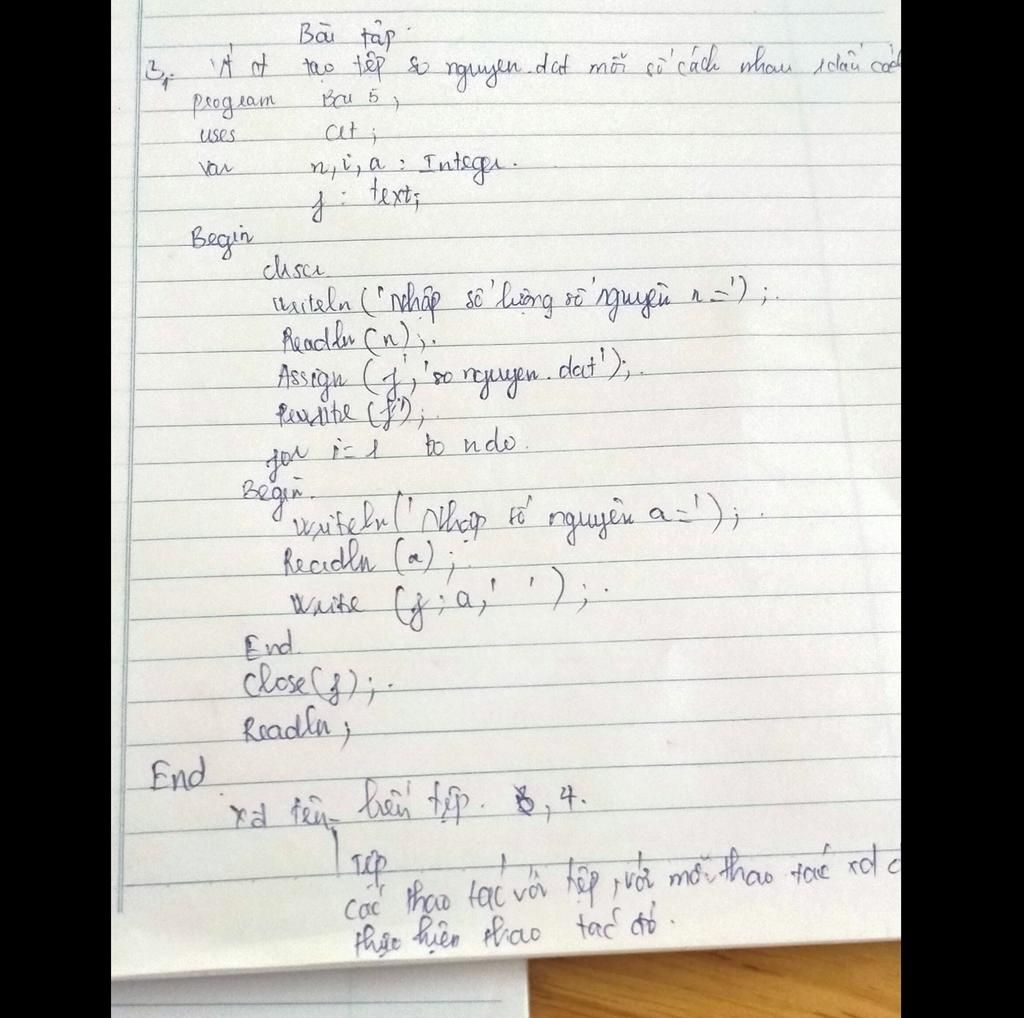 Bài tập
tạo tệp so nguyen.dat mỗi số cách nhau 1 dấu cách
program Bai 5;
uses crt;
var n, i, a : Integer.
f : text;
Begin
clrscr
writeln ('Nhập số lượng số nguyên n =');
Readln (n);
Assign (f, 'so nguyen.dat');
Rewrite (f);
for i = 1 to n do.
Begin
writeln ('Nhập số nguyên a =');
Readln (a);
Write (f; a, ' ');
End
Close (f);
Readln;
End
xđ tên biến tệp. 3, 4.
Tệp
các thao tác với tệp, với mỗi thao tác xđ
thực hiện thao tác đó.